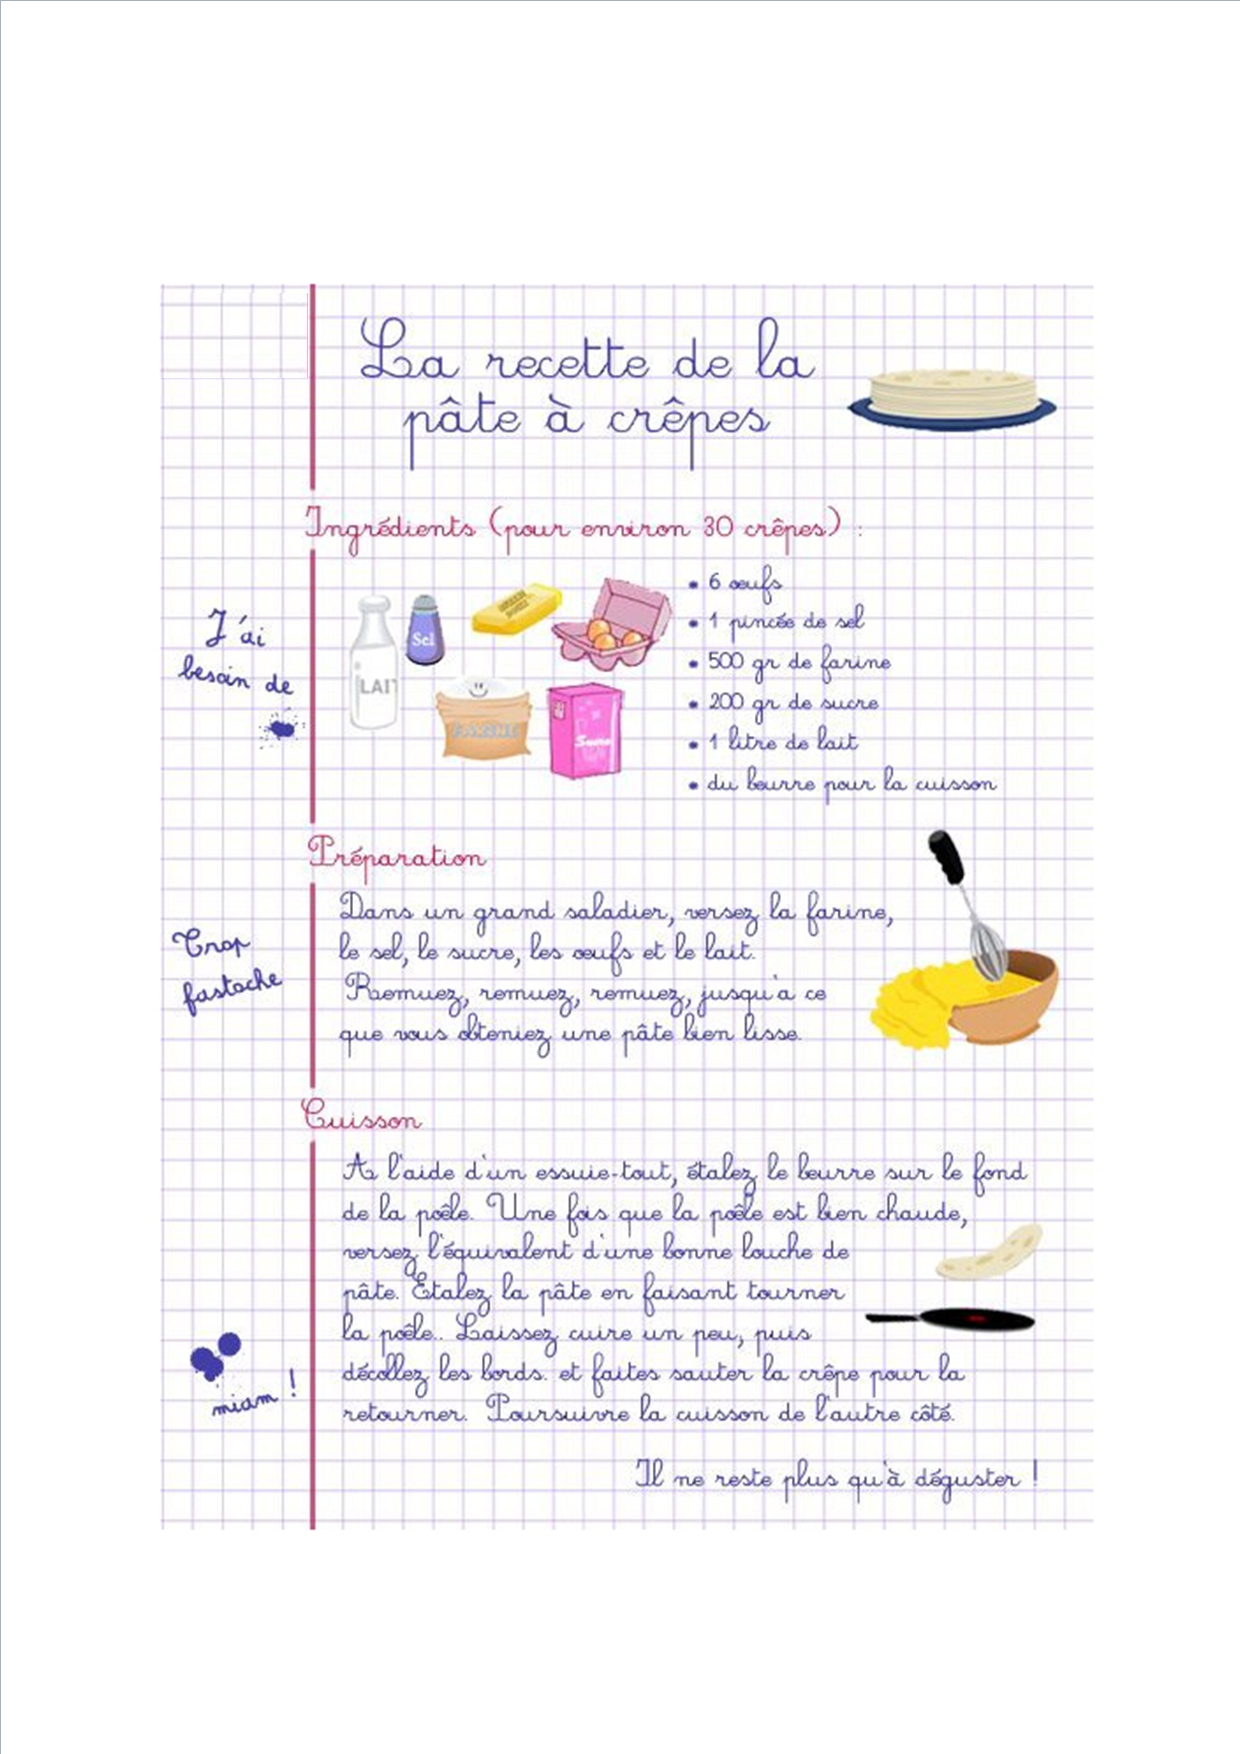 La recette de la
pâte à crêpes
Ingrédients (pour environ 30 crêpes) :
J'ai
besoin de
LAIT
Sel
FARINE
Sucre
• 6 œufs
• 1 pincée de sel
• 500 gr de farine
• 200 gr de sucre
• 1 litre de lait
• du beurre pour la cuisson
Préparation
Trop
fastoche
Dans un grand saladier, versez la farine,
le sel, le sucre, les œufs et le lait.
Remuez, remuez, remuez, jusqu'a ce
que vous obteniez une pâte bien lisse.
Cuisson
A l'aide d'un essuie-tout, étalez le beurre sur le fond
de la poêle. Une fois que la poêle est bien chaude,
versez l'équivalent d'une bonne louche de
pâte. Etalez la pâte en faisant tourner
la poêle.. Laissez cuire un peu, puis
décollez les bords. et faites sauter la crêpe pour la
retourner. Poursuivre la cuisson de l'autre côté.
miam !
Il ne reste plus qu'à déguster !